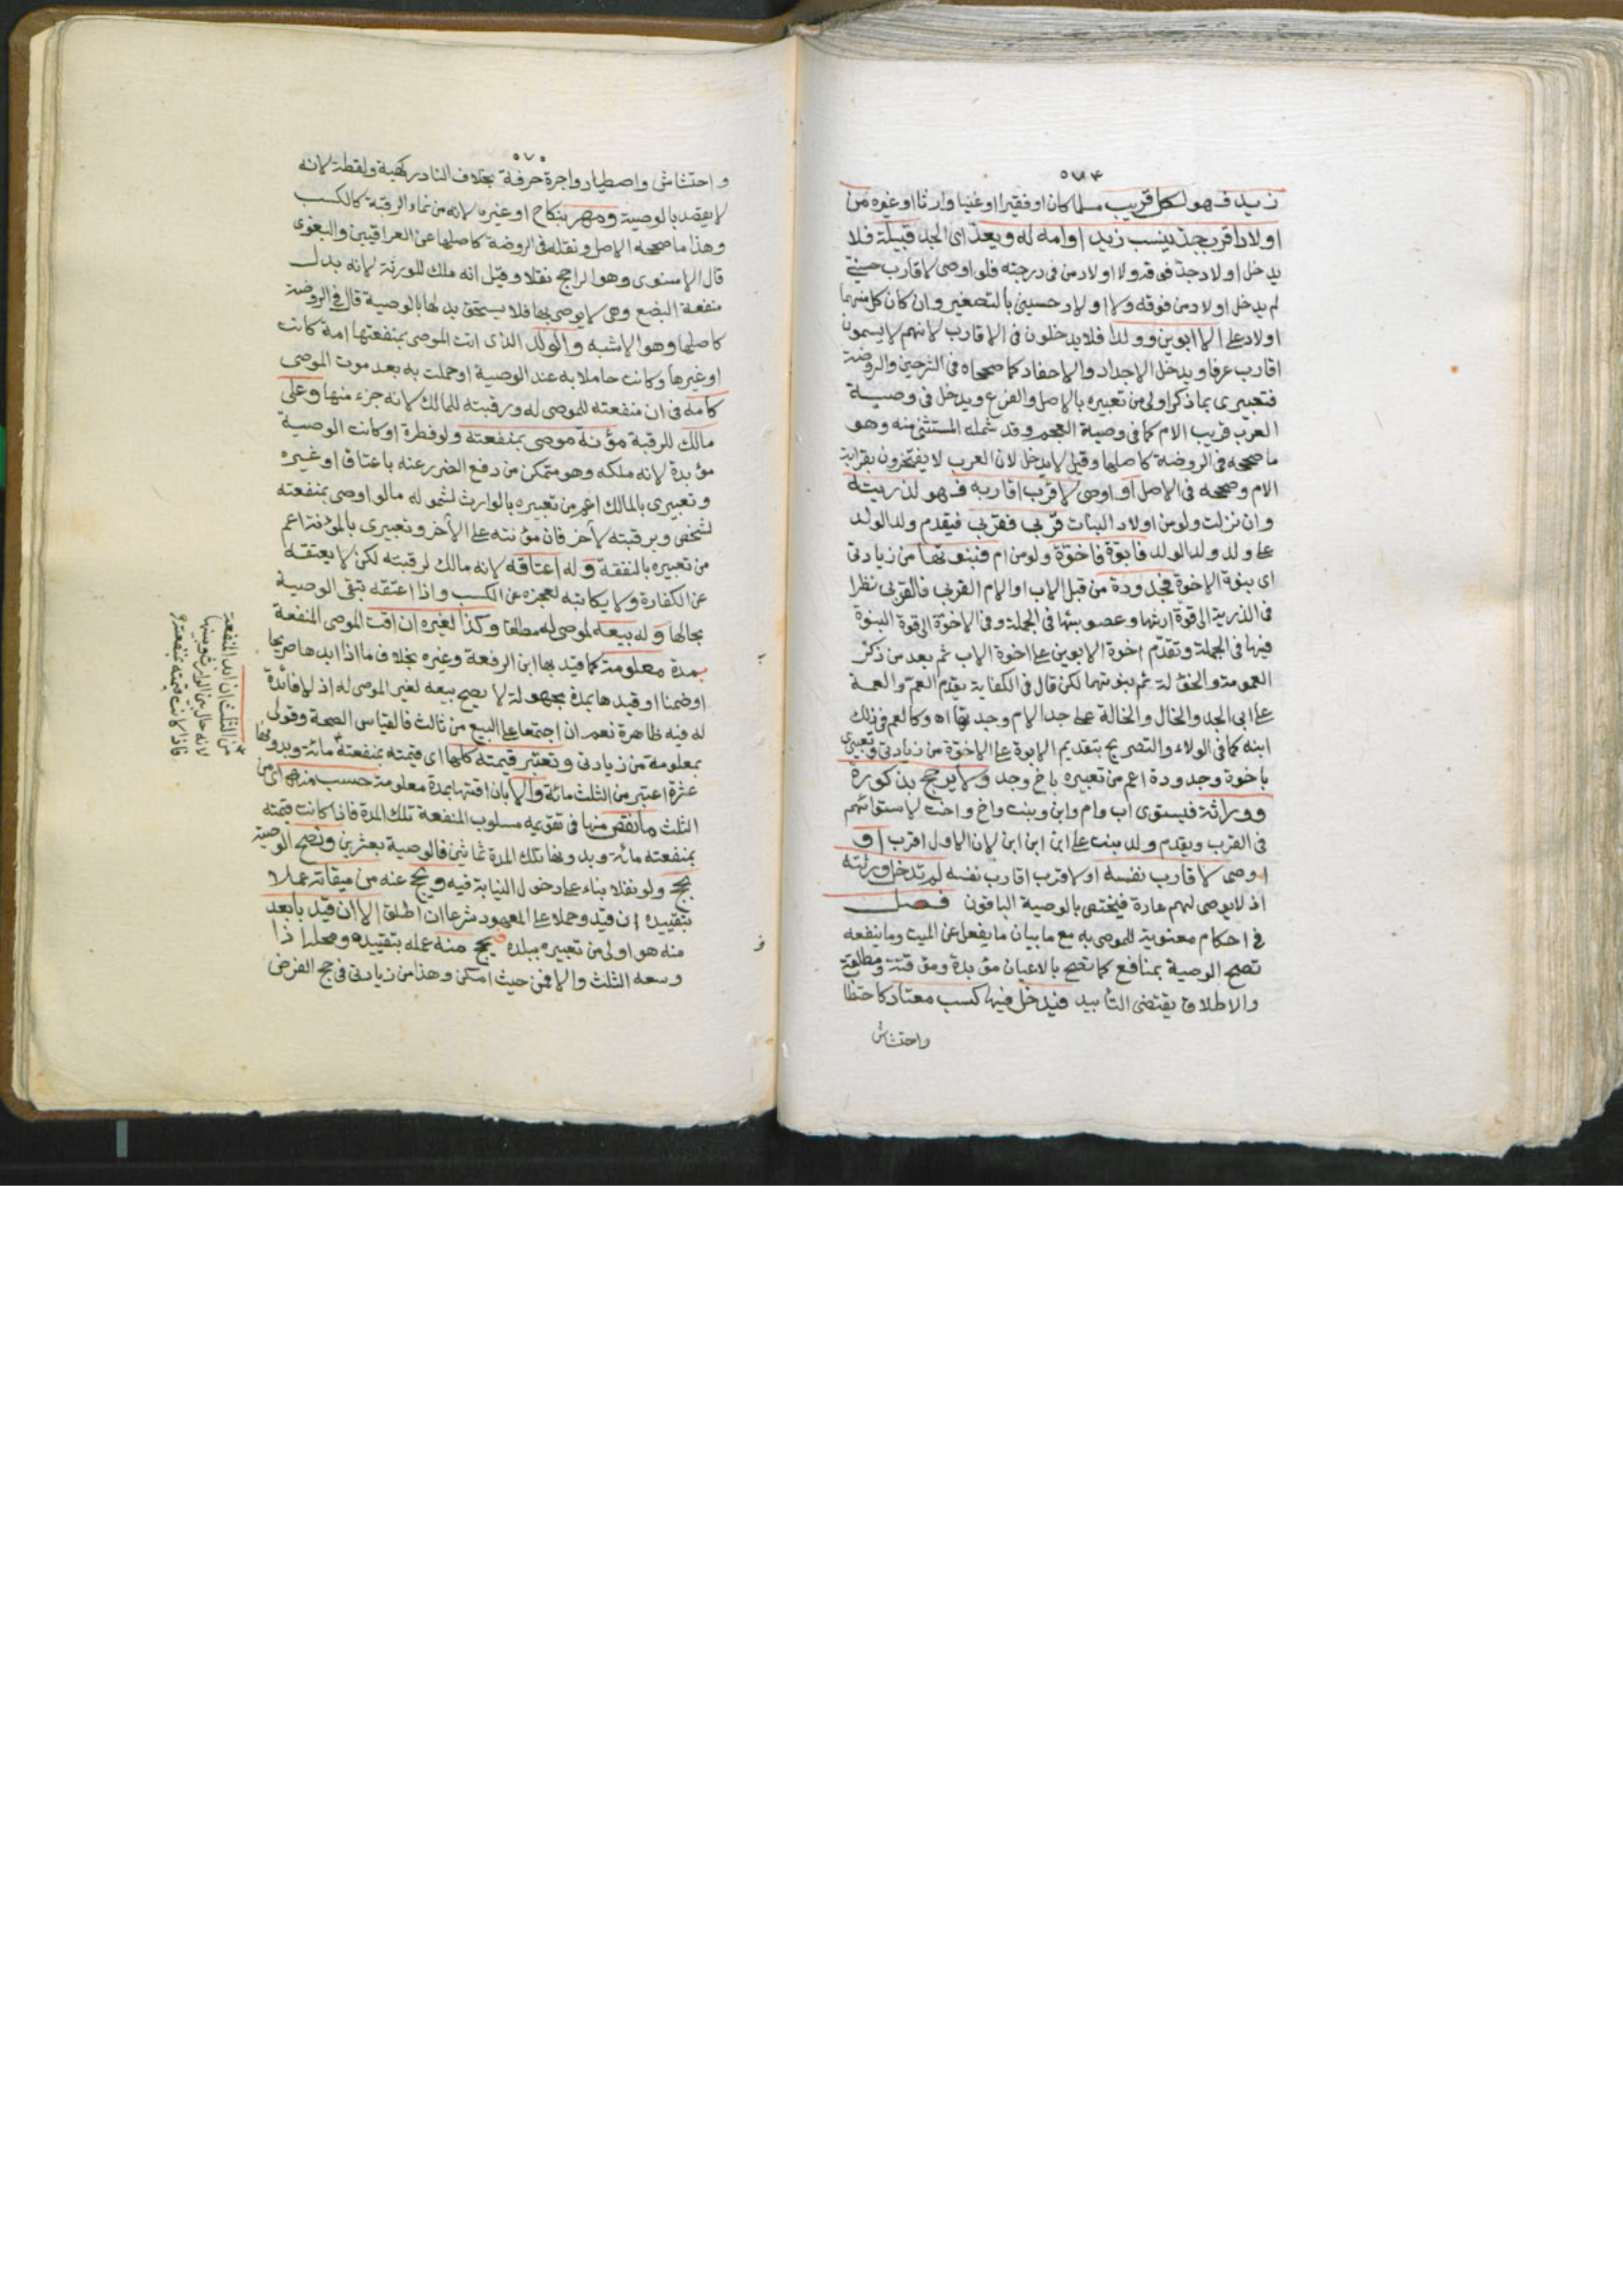 ٥٧٤
زيد فهو لكل قريب مسلما كان او فقيرا او غنيا وارثا او غيره من
اولاد اقرب جد ينسب زيد او امه له ويعد اى الجد قبيلة فلا
يدخل اولاد جد فوقه ولا اولاد من فى درجته فلو اوصى لاقارب حسنى
لم يدخل اولاد من فوقه ولا اولاد حسينى بالتصغير وان كان كل منهما
اولاد على الا ابوين وولدا فلا يدخلون فى الاقارب لانهم لا يسمون
اقارب عرفا ويدخل الاجداد والاحفاد كما صححاه فى الشرحين والروضة
فتعبيرى بما ذكر اولى من تعبيره بالاصل والفرع ويدخل فى وصية
العرب قريب الام كما فى وصية العجم وقد شمله المستثنى منه وهو
ما صححه فى الروضة كاصلها وقيل لا يدخل لان العرب لا يفتخرون بقرابة
الام وصححه فى الاصل او اوصى لاقرب اقاربه فهو لذريته
وان نزلت ولو من اولاد البنات قربى فقربى فيقدم ولد الولد
على ولد ولد الولد فابوة فاخوة ولو من ام فبنوتها من زيادتى
اى بنوة الاخوة فجدودة من قبل الاب او الام القربى فالقربى نظرا
فى الذرية الى قوة ارثها وعصوبتها فى الجملة وفى الاخوة الى قوة البنوة
فيها فى الجملة وتقدم اخوة الابوين على اخوة الاب ثم بعد من ذكر
العمومة والخؤلة ثم بنوتهما لكن قال فى الكفاية يقدم العم والعمة
على ابى الجد والخال والخالة على جد الام وجدتها اه وكالعم فى ذلك
ابنه كما فى الولاء والتصريح بتقديم الابوة على الاخوة من زيادتى وتعبيرى
باخوة وجدودة اعم من تعبيره باخ وجد ولا يرجح بذكورة
ووراثة فيستوى اب وام وابن وبنت واخ واخت لاستوائهم
فى القرب ويقدم ولد بنت على ابن ابن ابن لان الاول اقرب او
اوصى لاقارب نفسه او لاقرب اقارب نفسه لم تدخل ورثته
اذ لا يوصى لهم عادة فيختص بالوصية الباقون فصل
فى احكام معنوية للموصى به مع ما بيان ما يفعل عن الميت وما ينفعه
تصح الوصية بمنافع كما تصح بالاعيان مؤبدة ومؤقتة ومطلقة
والاطلاق يقتضى التأبيد فيدخل فيها كسب معتاد كاحتطا
واحتشاش
٥٧٥
واحتشاش واصطياد واجرة حرفة بخلاف النادر كهبة ولقطة لانه
لا يقصد بالوصية ومهر بنكاح او غيره لانه من نماء الرقبة كالكسب
وهذا ما صححه الاصل ونقله فى الروضة كاصلها عن العراقيين والبغوى
قال الاسنوى وهو الراجح نقلا وقيل انه ملك للورثة لانه بدل
منفعة البضع وهى لا يوصى بها فلا يستحق بدلها بالوصية قال فى الروضة
كاصلها وهو الاشبه والولد الذى اتت الموصى بمنفعتها امة كانت
او غيرها وكانت حاملا به عند الوصية او حملت به بعد موت الموصى
كامه فى ان منفعته للموصى له ورقبته للمالك لانه جزء منها وعلى
مالك للرقبة مؤنة موصى بمنفعته ولو فطرة او كانت الوصية
مؤبدة لانه ملكه وهو متمكن من دفع الضرر عنه باعتاق او غيره
وتعبيرى بالمالك اعم من تعبيره بالوارث لشموله ما لو اوصى بمنفعته
لشخص وبرقبته لآخر فان مؤنته على الآخر وتعبيرى بالمؤنة اعم
من تعبيره بالنفقة وله اعتاقه لانه مالك لرقبته لكن لا يعتقه
عن الكفارة ولا يكاتبه لعجزه عن الكسب واذا اعتقه تبقى الوصية
بحالها وله بيعه لموصى له مطلقا وكذا لغيره ان اقت الموصى المنفعة
بمدة معلومة كما قيد بها ابن الرفعة وغيره بخلاف ما اذا ابدها صريحا
او ضمنا او قيدها بمدة مجهولة لا يصح بيعه لغير الموصى له اذ لا فائدة
له فيه ظاهرة نعم ان اجتمعا على البيع من ثالث فالقياس الصحة وقولى
بمعلومة من زيادتى وتعتبر قيمته كلها اى قيمته بمنفعته مائة وبدونها
عشرة اعتبر من الثلث مائة والا بان اقتها بمدة معلومة حسب منه اى من
الثلث ما نقص منها فى تقويمه مسلوب المنفعة تلك المدة فاذا كانت قيمته
بمنفعته مائة وبدونها تلك المدة ثمانين فالوصية بعشرين وتصح الوصية
بحج ولو نفلا بناء على دخول النيابة فيه ويحج عنه من ميقاته عملا
بتقييده ان قيد وحملا على المعهود شرعا ان اطلق الا ان قيد بابعد
منه هو اولى من تعبيره ببلده فيحج منه عمله بتقييده ومحله اذا
وسعه الثلث والا فمن حيث امكن وهذا من زيادتى فى حج الفرض
من الثلث ان ابد المنفعة
لانه حال بين الوارث وبينها
فاذا كانت قيمته بمنفعته